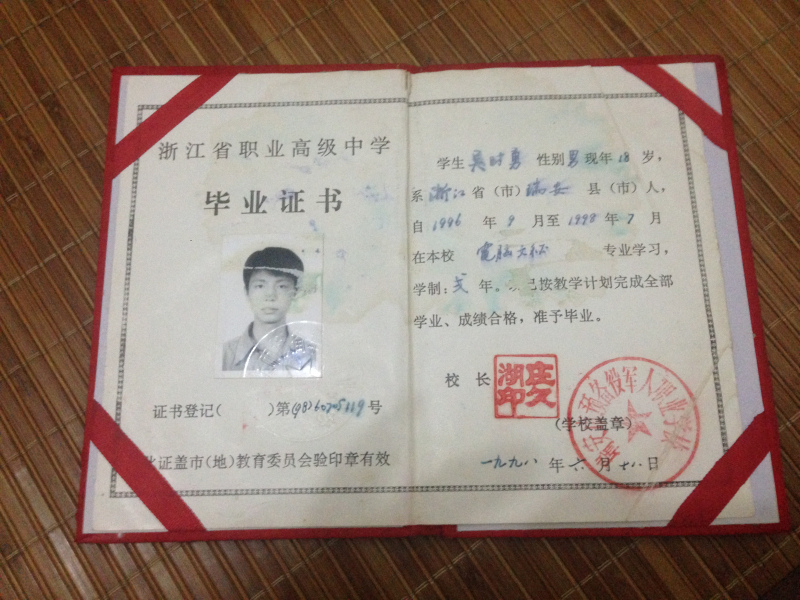 浙江省职业高级中学
毕业证书
证书登记( )第(98)60205119号
此证盖市(地)教育委员会验印章有效
学生 吴时勇 性别男现年18岁，
系浙江省(市)瑞安县(市)人，
自1996年9月至1998年7月
在本校 专业学习，
学制: 年。 已按教学计划完成全部
学业、成绩合格，准予毕业。
校长
湖印
(学校盖章)
一九九八年六月十八日